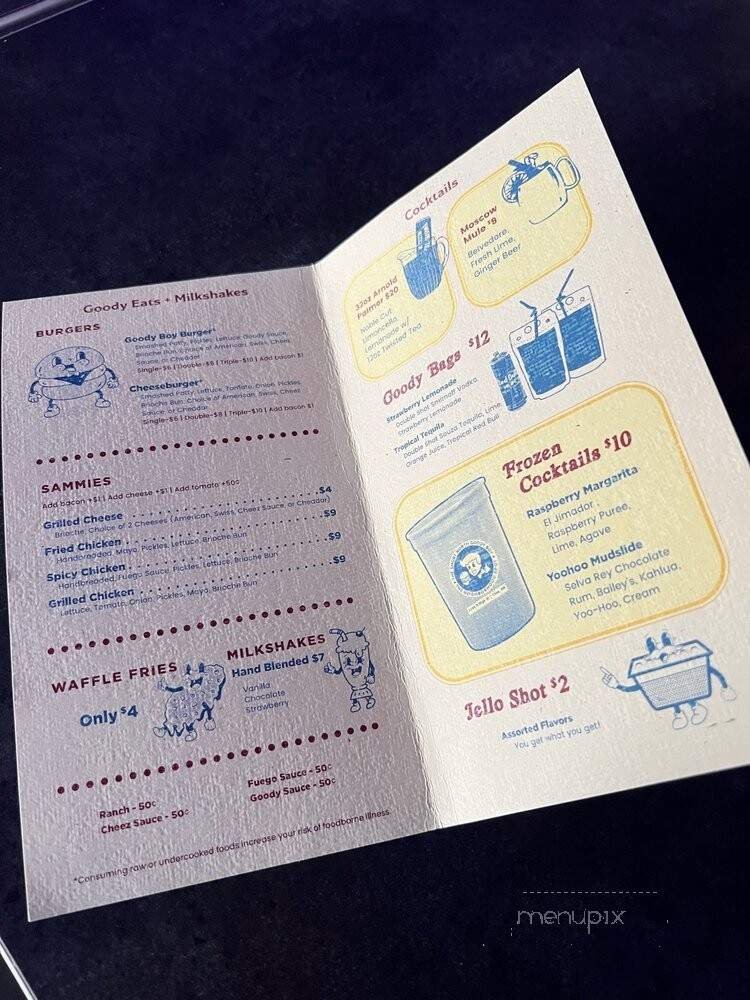 Goody Eats + Milkshakes
BURGERS
Goody Boy Burger*
Smashed Patty, Pickles, Lettuce, Goody Sauce,
Brioche Bun, Choice of American, Swiss, Cheez
Sauce, or Cheddar
Single-$6 | Double-$8 | Triple-$10 | Add bacon $1
Cheeseburger*
Smashed Patty, Lettuce, Tomato, Onion, Pickles
Brioche Bun, Choice of American, Swiss, Cheez
Sauce or Cheddar
Single-$6 | Double-$8 | Triple-$10 | Add bacon $1
SAMMIES
Add bacon +$1 | Add cheese +$1 | Add tomato +50¢
Grilled Cheese $4
Brioche, Choice of 2 Cheeses (American, Swiss, Cheez Sauce, or Cheddar)
Fried Chicken $9
Handbreaded, Mayo, Pickles, Lettuce, Brioche Bun
Spicy Chicken $9
Handbreaded, Fuego Sauce, Pickles, Lettuce, Brioche Bun
Grilled Chicken $9
Lettuce, Tomato, Onion, Pickles, Mayo, Brioche Bun
WAFFLE FRIES
Only $4
MILKSHAKES
Hand Blended $7
Vanilla
Chocolate
Strawberry
Ranch - 50¢
Cheez Sauce - 50¢
Fuego Sauce - 50¢
Goody Sauce - 50¢
*Consuming raw or undercooked foods increase your risk of foodborne illness.
Cocktails
32oz Arnold
Palmer $20
Noble Cut
Limoncello,
Lemonade w/
12oz Twisted Tea
Moscow
Mule $8
Belvedere,
Fresh Lime,
Ginger Beer
Goody Bags $12
Strawberry Lemonade
Double Shot Smirnoff Vodka,
Strawberry Lemonade
Tropical Tequila
Double Shot Sauza Tequila, Lime,
Orange Juice, Tropical Red Bull
Frozen
Cocktails $10
Raspberry Margarita
El Jimador,
Raspberry Puree,
Lime, Agave
Yoohoo Mudslide
Selva Rey Chocolate
Rum, Bailey's, Kahlua,
Yoo-Hoo, Cream
Jello Shot $2
Assorted Flavors
You get what you get!
menupix